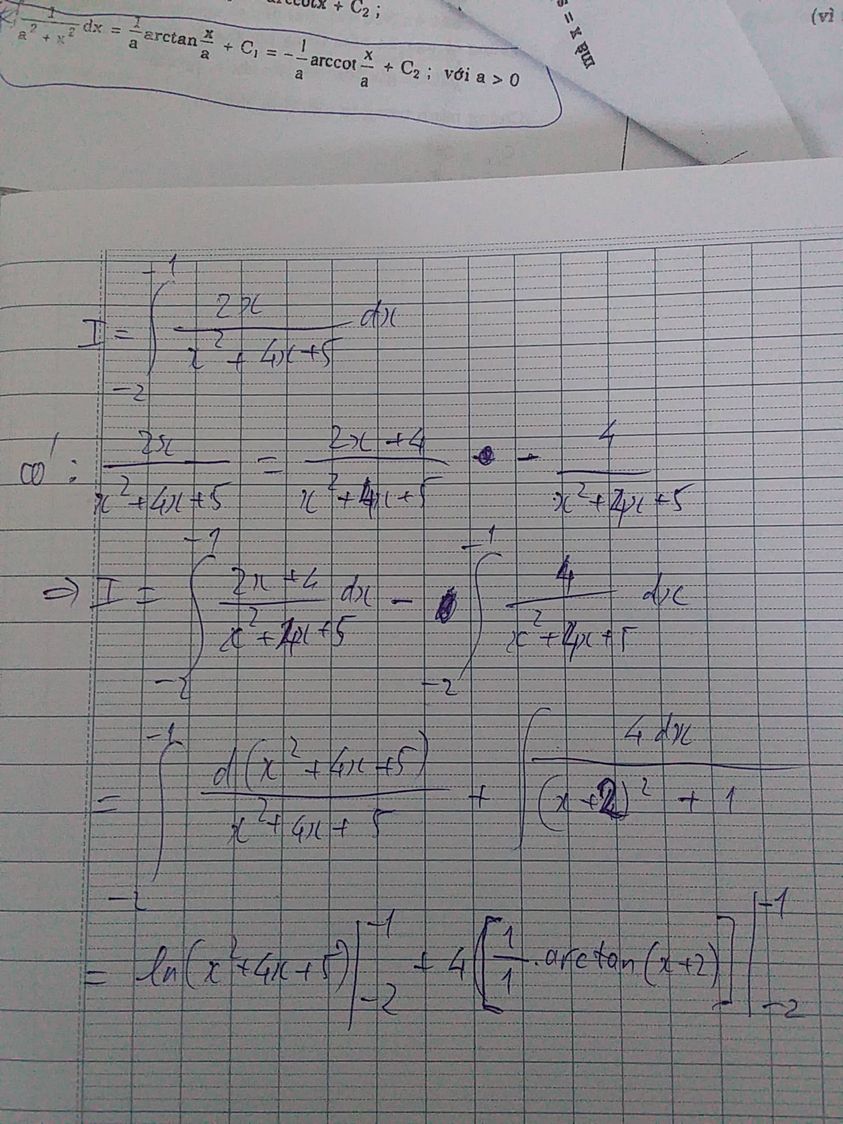 arccotx + C₂ ;
(vì
1/(a² + x²) dx = 1/a arctan x/a + C₁ = -1/a arccot x/a + C₂ ; với a > 0
I = ∫_{-2}^{-1} 2x/(x² + 4x+5) dx
có: 2x/(x²+4x+5) = (2x+4)/(x²+4x+5) - 4/(x²+4x+5)
⇒ I = ∫_{-2}^{-1} (2x+4)/(x²+4x+5) dx - ∫_{-2}^{-1} 4/(x²+4x+5) dx
= ∫_{-2}^{-1} d(x²+4x+5)/(x²+4x+5) + ∫ 4dx/((x+2)² + 1)
= ln(x²+4x+5)|_{-2}^{-1} + 4[1/1 . arctan(x+2)]|_{-2}^{-1}